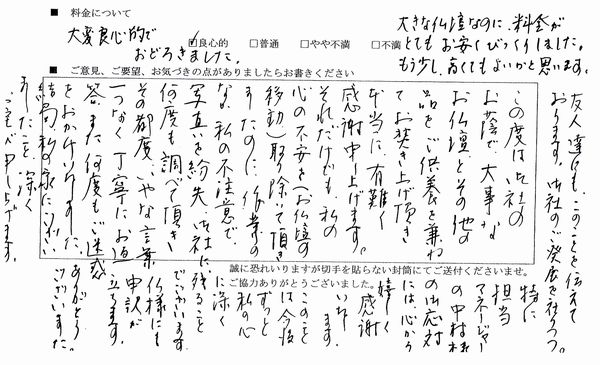 ■ 料金について
☑良心的 □普通 □やや不満 □不満
大変良心的で
おどろきました。
大きな仏壇なのに、料金が
とてもお安くびっくりしました。
もう少し、高くてもよいかと思います。
■ ご意見、ご要望、お気づきの点がありましたらお書きください
この度は御社の
お蔭で、大事な
お仏壇とその他の
品をご供養を兼ね
てお焚き上げ頂き
本当に、有難く
感謝申し上げます。
それだけでも私の
心の不安を(お仏壇の
移動)取り除いて頂き
ましたのに、作業の
な、私の不注意で
写真を紛失、御社に
何度も調べて頂き
その都度、いやな言葉
一つなく丁寧にお返
答、また何度もご迷惑
をおかけいたしました。
結局、私の家にござい
ましたこと、深く
申し上げます。
ありがとう
ございました。
仏様にも
申訳が
立ちます。
残ること
でございます。
このこと
は今後
ずっと
私の心
に深く
特に
担当
マネージャー
の中村様
の御応対
には、心から
嬉しく
感謝
いたし
ます。
友人達にも、このことを伝えて
おります。御社のご発展を祈りつつ。
誠に恐れいりますが切手を貼らない封筒にてご送付くださいませ。
ご協力ありがとうございました。